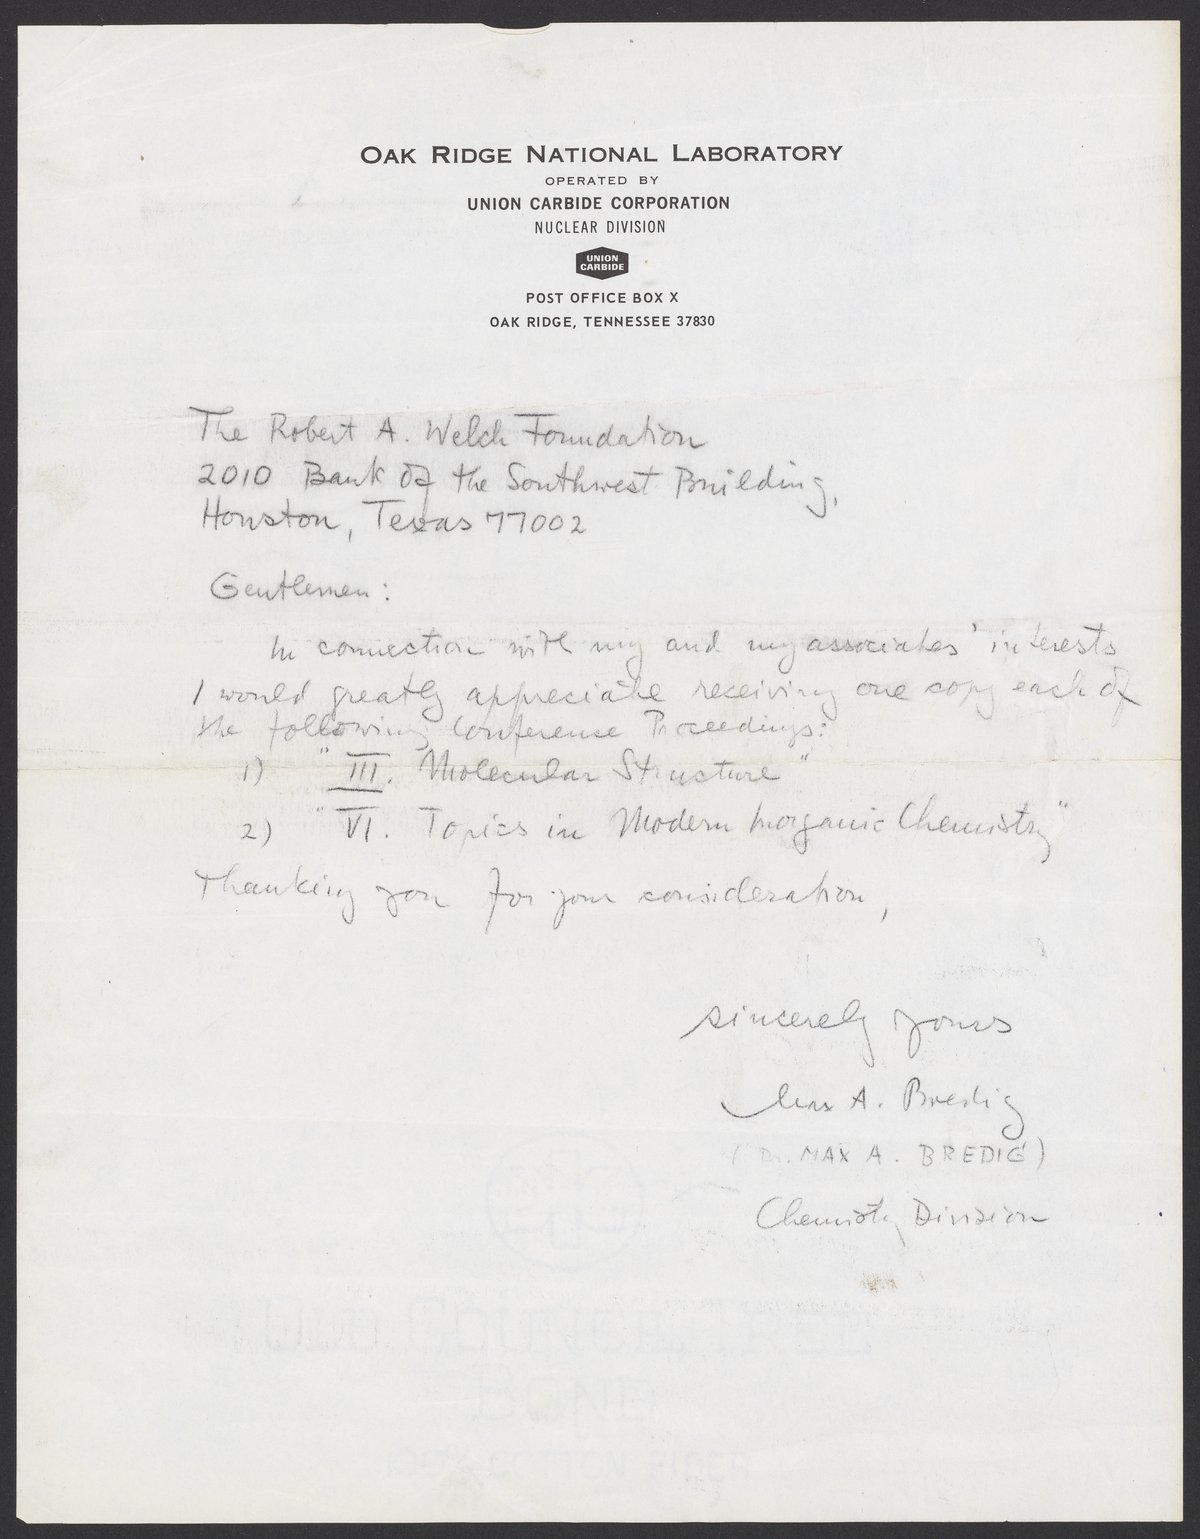 OAK RIDGE NATIONAL LABORATORY
OPERATED BY
UNION CARBIDE CORPORATION
NUCLEAR DIVISION
UNION
CARBIDE
POST OFFICE BOX X
OAK RIDGE, TENNESSEE 37830
The Robert A. Welch Foundation
2010 Bank of the Southwest Building,
Houston, Texas 77002
Gentlemen:
In connection with my and my associates' interests
I would greatly appreciate receiving one copy each of
the following Conference Proceedings:
1) "III. Molecular Structure"
2) "VI. Topics in Modern Inorganic Chemistry"
Thanking you for your consideration,
sincerely yours
Max A. Bredig
(Dr. MAX A. BREDIG)
Chemistry Division
COTTON FIBER